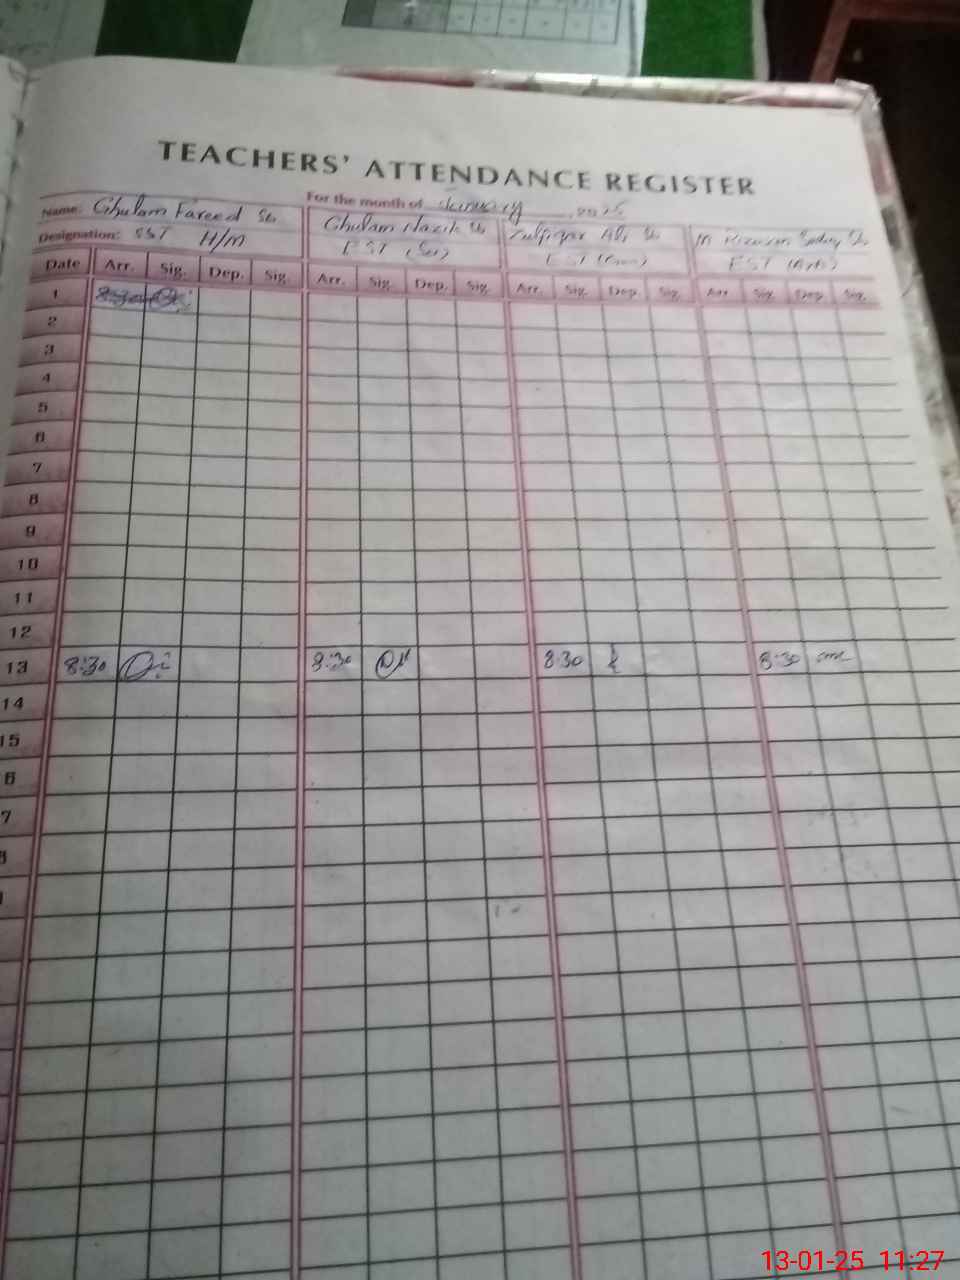 TEACHERS' ATTENDANCE REGISTER
Name: Ghulam Fareed Sb For the month of January, 2025
Designation: SST H/M Ghulam Nazik Sb Zulfiqar Ali Sb M Rizwan Sb
EST (Sci) EST EST (Arb)
Date Arr. Sig. Dep. Sig. Arr. Sig. Dep. Sig. Arr. Sig. Dep. Sig. Arr. Sig. Dep. Sig.
1 8:30
2
3
4
5
6
7
8
9
10
11
12
13 8:30 8:30 8:30 8:30
14
15
6
7
13-01-25 11:27